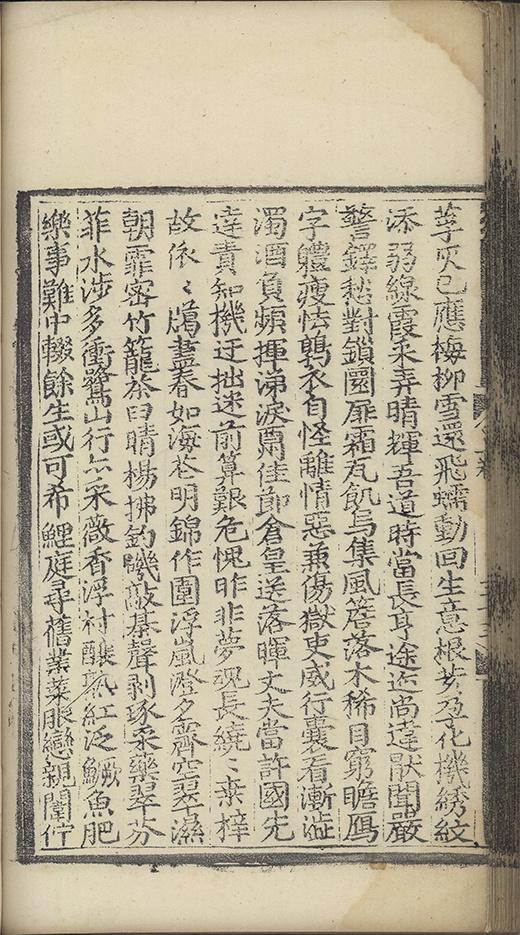 莩灰已應梅柳雪還飛蠕動回生意根荄孕化機綉紋
添弱線霞采弄晴輝吾道時當長亨途迩尚違厭聞嚴
警鐸愁對鎖圜扉霜瓦飢烏集風簷落木稀目窮瞻鴈
字軆瘦怯鶉衣自怪離情惡兼傷獄吏威行囊看漸澁
濁酒負頻揮涕淚佳節倉皇送落暉丈夫當許國先
達責知機迂拙迷前算艱危愧昨非夢魂長繞〻桑梓
故依〻牕晝春如海花明錦作圍浮嵐澄夕霽空翠濕
朝霏密竹籠茶臼晴楊拂釣磯敲棊聲剥琢采藥翠芬
菲水涉多衝鷺山行亦采薇香浮村釀熟紅泛鱖魚肥
樂事難中輟餘生或可希鯉庭尋舊業菜服戀親闈佇